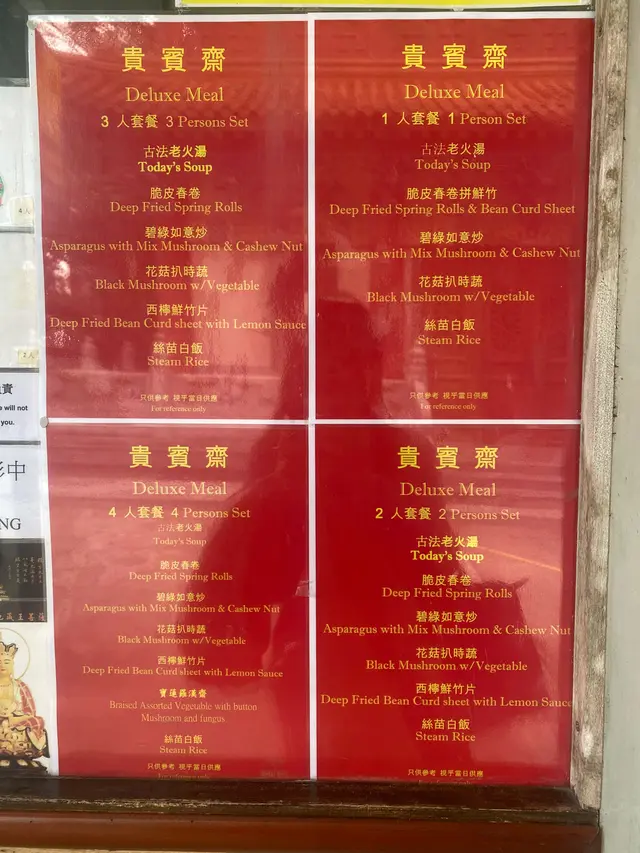 貴賓齋
Deluxe Meal
3 人套餐 3 Persons Set
古法老火湯
Today's Soup
脆皮春卷
Deep Fried Spring Rolls
碧綠如意炒
Asparagus with Mix Mushroom & Cashew Nut
花菇扒時蔬
Black Mushroom w/Vegetable
西檸鮮竹片
Deep Fried Bean Curd sheet with Lemon Sauce
絲苗白飯
Steam Rice
只供參考 視乎當日供應
For reference only
貴賓齋
Deluxe Meal
1 人套餐 1 Person Set
古法老火湯
Today's Soup
脆皮春卷拼鮮竹
Deep Fried Spring Rolls & Bean Curd Sheet
碧綠如意炒
Asparagus with Mix Mushroom & Cashew Nut
花菇扒時蔬
Black Mushroom w/Vegetable
絲苗白飯
Steam Rice
只供參考 視乎當日供應
For reference only
貴賓齋
Deluxe Meal
4 人套餐 4 Persons Set
古法老火湯
Today's Soup
脆皮春卷
Deep Fried Spring Rolls
碧綠如意炒
Asparagus with Mix Mushroom & Cashew Nut
花菇扒時蔬
Black Mushroom w/Vegetable
西檸鮮竹片
Deep Fried Bean Curd sheet with Lemon Sauce
寶蓮羅漢齋
Braised Assorted Vegetable with button
Mushroom and fungus
絲苗白飯
Steam Rice
只供參考 視乎當日供應
For reference only
貴賓齋
Deluxe Meal
2 人套餐 2 Persons Set
古法老火湯
Today's Soup
脆皮春卷
Deep Fried Spring Rolls
碧綠如意炒
Asparagus with Mix Mushroom & Cashew Nut
花菇扒時蔬
Black Mushroom w/Vegetable
西檸鮮竹片
Deep Fried Bean Curd sheet with Lemon Sauce
絲苗白飯
Steam Rice
只供參考 視乎當日供應
責
will not
you.
中
NG